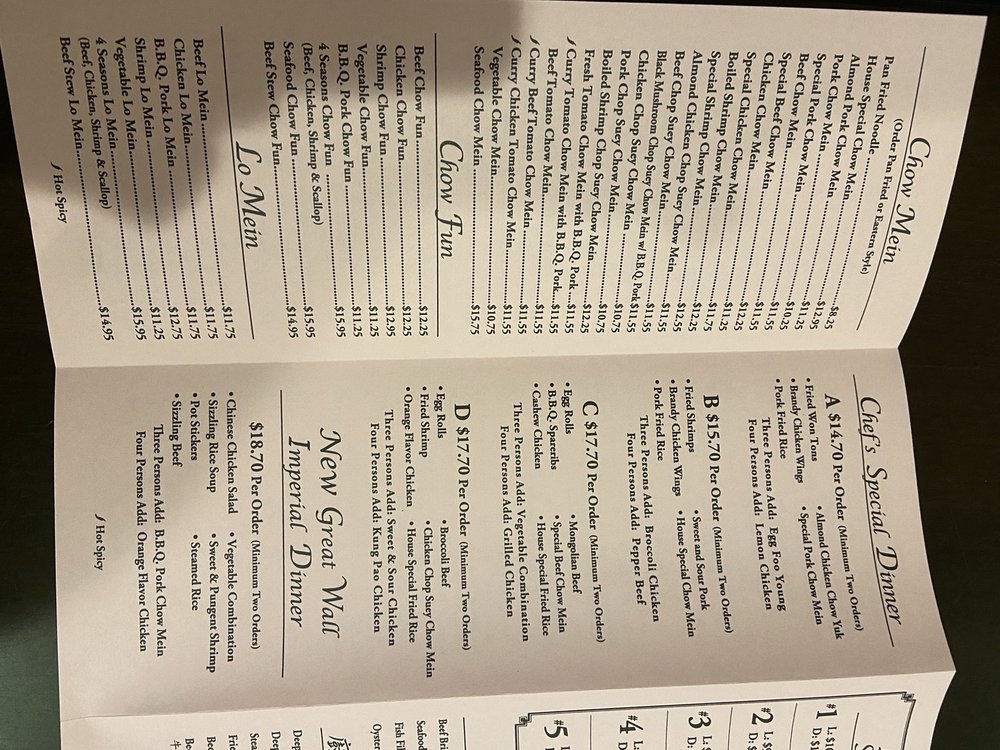 Chow Mein
(Order Pan Fried or Eastern Style)
Pan Fried Noodle $8.25
House Special Chow Mein $12.95
Almond Pork Chow Mein $11.25
Pork Chow Mein $10.25
Special Pork Chow Mein
Beef Chow Mein
Special Beef Chow Mein
Chicken Chow Mein
Special Chicken Chow Mein
Boiled Shrimp Chow Mein
Special Shrimp Chow Mein
Almond Chicken Chow Mein
Beef Chop Suey Chow Mein
Black Mushroom Chop Suey Chow Mein w/ B.B.Q. Pork $11.55
Chicken Chop Suey Chow Mein $11.55
Pork Chop Suey Chow Mein $10.75
Boiled Shrimp Chop Suey Chow Mein $12.25
Fresh Tomato Chow Mein $10.75
Curry Tomato Chow Mein with B.B.Q. Pork $11.55
Beef Tomato Chow Mein with B.B.Q. Pork $11.55
Curry Beef Tomato Chow Mein $11.55
Curry Chicken Tomato Chow Mein $11.55
Vegetable Chow Mein $10.75
Seafood Chow Mein $15.75
Chow Fun
Beef Chow Fun $12.25
Chicken Chow Fun $12.25
Shrimp Chow Fun $12.95
Vegetable Chow Fun $11.25
B.B.Q. Pork Chow Fun $11.25
4 Seasons Chow Fun $15.95
(Beef, Chicken, Shrimp & Scallop)
Seafood Chow Fun $15.95
Beef Stew Chow Fun $14.95
Lo Mein
Beef Lo Mein $11.75
Chicken Lo Mein $11.75
B.B.Q. Pork Lo Mein $12.75
Shrimp Lo Mein $11.25
Vegetable Lo Mein
4 Seasons Lo Mein $15.95
(Beef, Chicken, Shrimp & Scallop)
Beef Stew Lo Mein $14.95
Hot Spicy
Chef's Special Dinner
A $14.70 Per Order (Minimum Two Orders)
• Fried Won Tons • Almond Chicken Chow Yuk
• Brandy Chicken Wings • Special Pork Chow Mein
• Pork Fried Rice
Three Persons Add: Egg Foo Young
Four Persons Add: Lemon Chicken
B $15.70 Per Order (Minimum Two Orders)
• Fried Shrimps • Sweet and Sour Pork
• Brandy Chicken Wings • House Special Chow Mein
• Pork Fried Rice
Three Persons Add: Broccoli Chicken
Four Persons Add: Pepper Beef
C $17.70 Per Order (Minimum Two Orders)
• Egg Rolls • Mongolian Beef
• B.B.Q. Spareribs • Special Beef Chow Mein
• Cashew Chicken • House Special Fried Rice
Three Persons Add: Vegetable Combination
Four Persons Add: Grilled Chicken
D $17.70 Per Order (Minimum Two Orders)
• Egg Rolls • Broccoli Beef
• Fried Shrimp • Chicken Chop Suey Chow Mein
• Orange Flavor Chicken • House Special Fried Rice
Three Persons Add: Sweet & Sour Chicken
Four Persons Add: Kung Pao Chicken
New Great Wall
Imperial Dinner
$18.70 Per Order (Minimum Two Orders)
• Chinese Chicken Salad • Vegetable Combination
• Sizzling Rice Soup • Sweet & Pungent Shrimp
• Pot Stickers • Steamed Rice
• Sizzling Beef
Three Persons Add: B.B.Q. Pork Chow Mein
Four Persons Add: Orange Flavor Chicken
Hot Spicy
#1
#2
#3
#4
#5